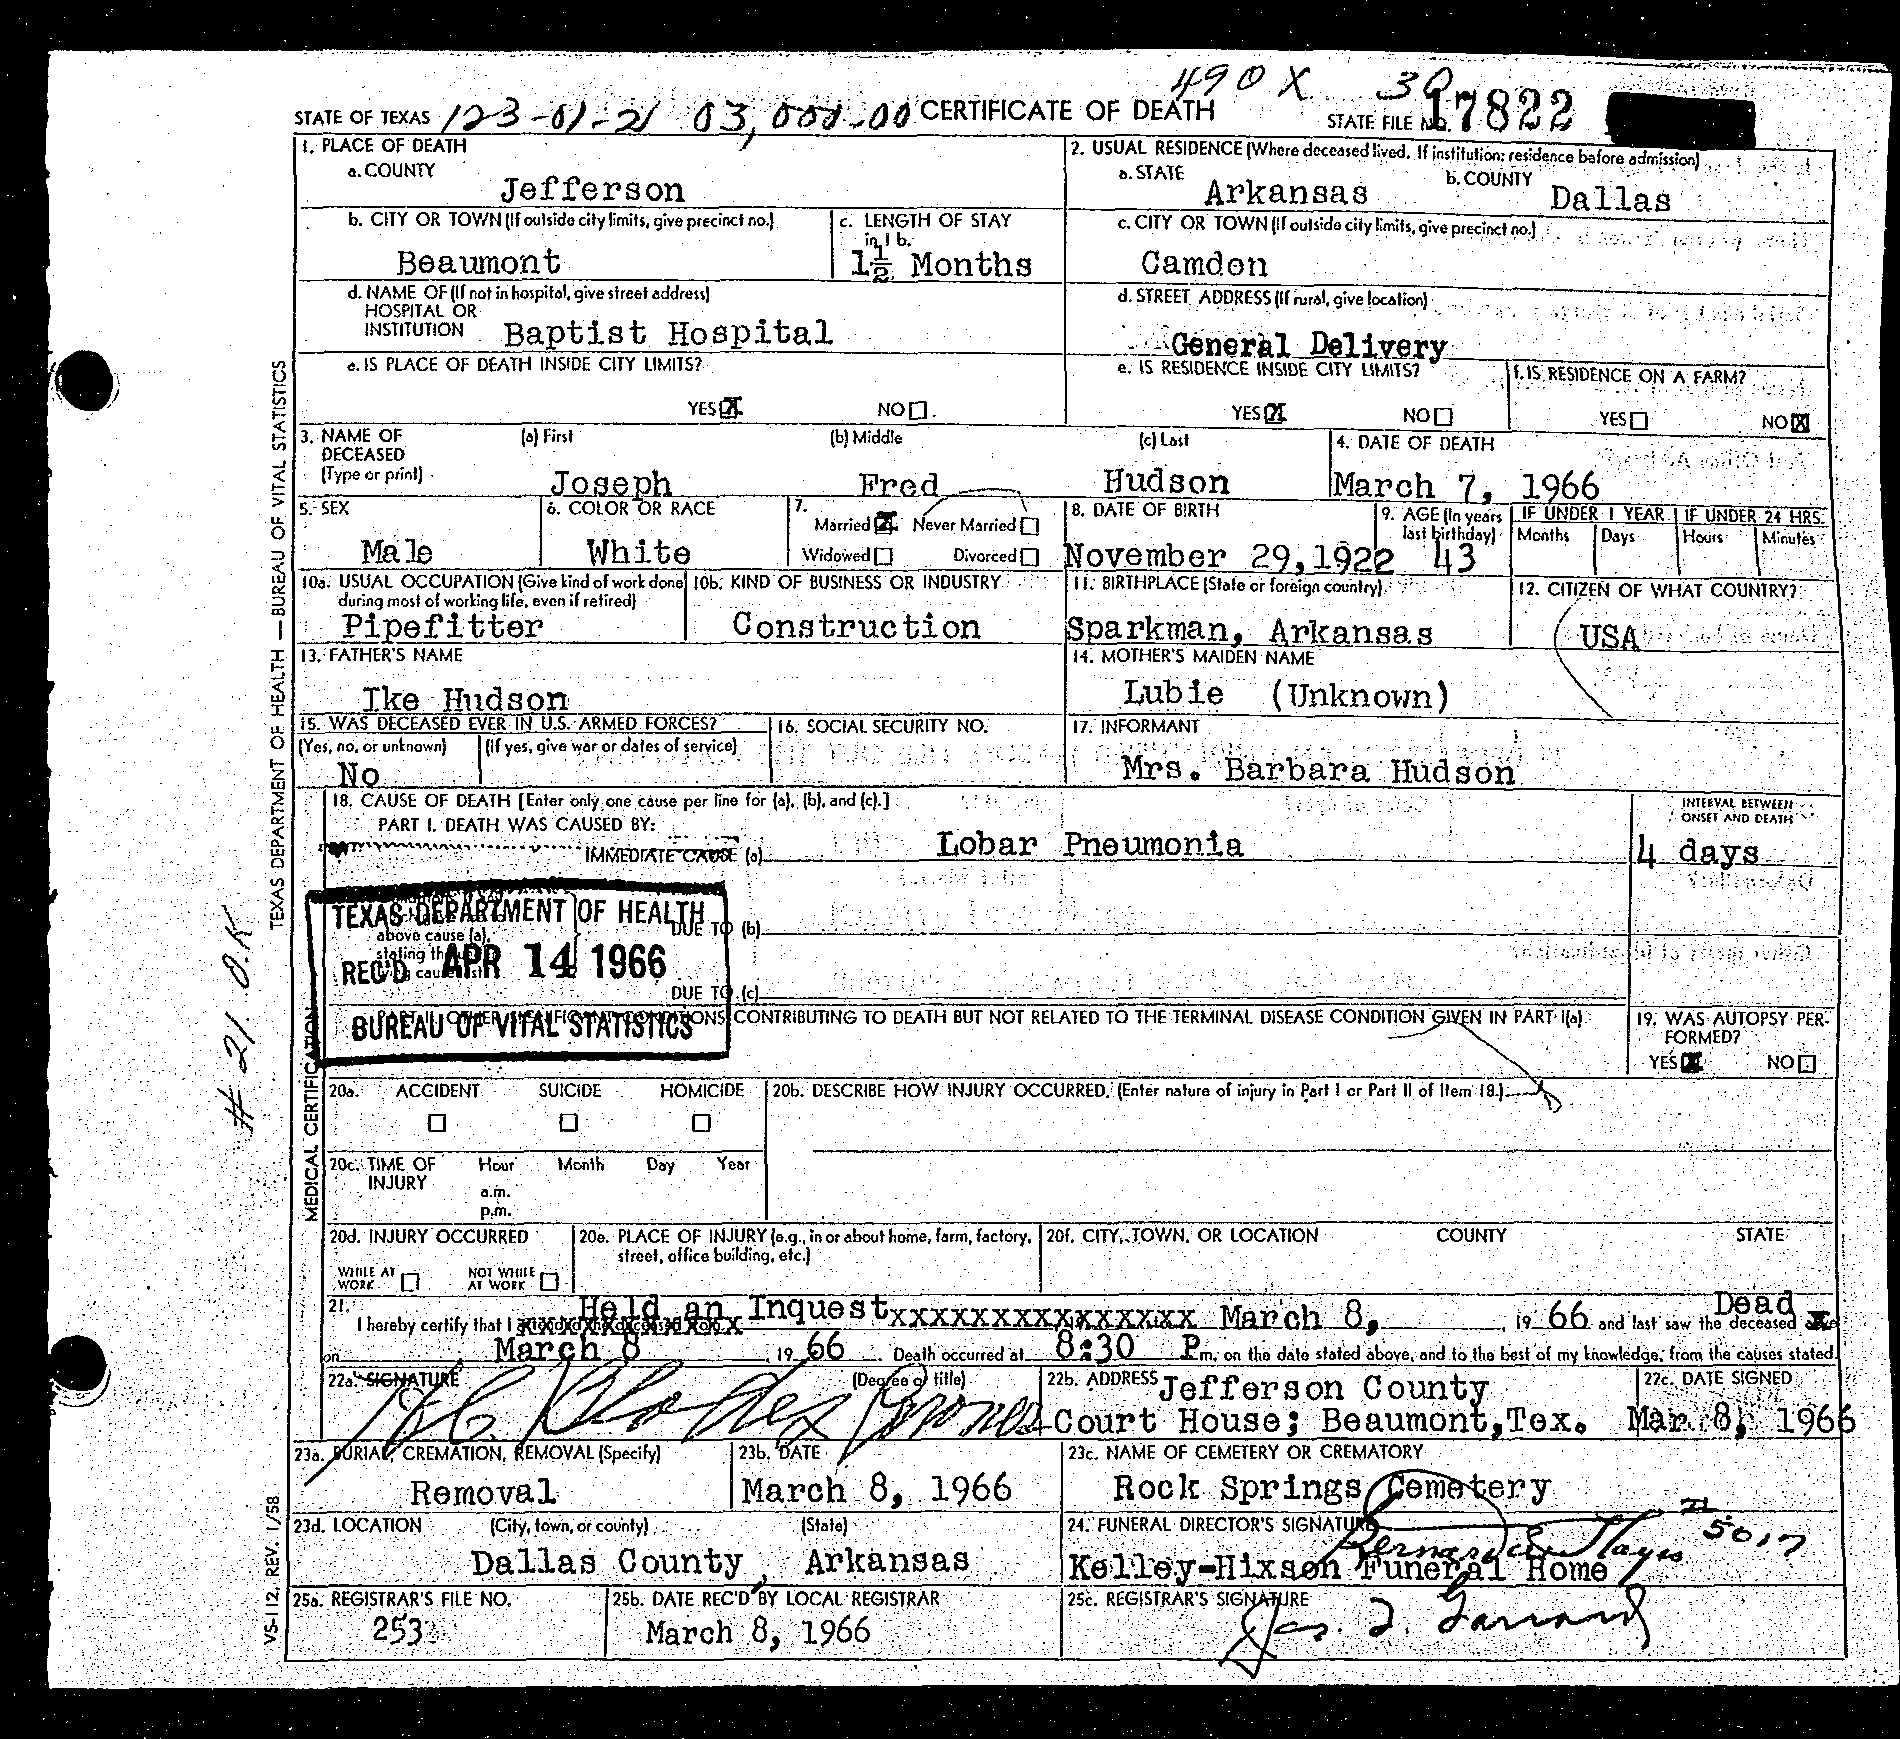 490 X 30
STATE OF TEXAS 123-01-21 03,000-00 CERTIFICATE OF DEATH STATE FILE NO. 17822
1. PLACE OF DEATH
a. COUNTY
Jefferson
2. USUAL RESIDENCE (Where deceased lived. If institution: residence before admission)
a. STATE b. COUNTY
Arkansas Dallas
b. CITY OR TOWN (If outside city limits, give precinct no.)
Beaumont
c. LENGTH OF STAY
in 1 b.
1½ Months
c. CITY OR TOWN (If outside city limits, give precinct no.)
Camden
d. NAME OF (If not in hospital, give street address)
HOSPITAL OR
INSTITUTION Baptist Hospital
d. STREET ADDRESS (If rural, give location)
General Delivery
e. IS PLACE OF DEATH INSIDE CITY LIMITS?
YES X NO
e. IS RESIDENCE INSIDE CITY LIMITS?
YES X NO
f. IS RESIDENCE ON A FARM?
YES NO X
3. NAME OF
DECEASED
(Type or print)
(a) First (b) Middle (c) Last
Joseph Fred Hudson
4. DATE OF DEATH
March 7, 1966
5. SEX
Male
6. COLOR OR RACE
White
7.
Married X Never Married
Widowed Divorced
8. DATE OF BIRTH
November 29,1922
9. AGE (In years
last birthday)
43
IF UNDER 1 YEAR IF UNDER 24 HRS.
Months Days Hours Minutes
10a. USUAL OCCUPATION (Give kind of work done
during most of working life, even if retired)
Pipefitter
10b. KIND OF BUSINESS OR INDUSTRY
Construction
11. BIRTHPLACE (State or foreign country)
Sparkman, Arkansas
12. CITIZEN OF WHAT COUNTRY?
USA
13. FATHER'S NAME
Ike Hudson
14. MOTHER'S MAIDEN NAME
Lubie (Unknown)
15. WAS DECEASED EVER IN U.S. ARMED FORCES?
(Yes, no, or unknown) (If yes, give war or dates of service)
No
16. SOCIAL SECURITY NO.
17. INFORMANT
Mrs. Barbara Hudson
18. CAUSE OF DEATH [Enter only one cause per line for (a), (b), and (c).]
PART I. DEATH WAS CAUSED BY:
IMMEDIATE CAUSE (a) Lobar Pneumonia
INTERVAL BETWEEN
ONSET AND DEATH
4 days
above cause (a),
DUE TO (b)
DUE TO (c)
TEXAS DEPARTMENT OF HEALTH
REC'D APR 14 1966
BUREAU OF VITAL STATISTICS
CONDITIONS CONTRIBUTING TO DEATH BUT NOT RELATED TO THE TERMINAL DISEASE CONDITION GIVEN IN PART I(a)
19. WAS AUTOPSY PER-
FORMED?
YES X NO
20a. ACCIDENT SUICIDE HOMICIDE
20b. DESCRIBE HOW INJURY OCCURRED. (Enter nature of injury in Part I or Part II of Item 18.)
20c. TIME OF
INJURY
Hour Month Day Year
a.m.
p.m.
20d. INJURY OCCURRED
WHILE AT
WORK
NOT WHILE
AT WORK
20e. PLACE OF INJURY (e.g., in or about home, farm, factory,
street, office building, etc.)
20f. CITY, TOWN, OR LOCATION COUNTY STATE
21.
I hereby certify that I Held an Inquest xxxxxxxxxxxxxxx March 8, 19 66 and last saw the deceased Dead
on March 8 , 19 66 Death occurred at 8:30 P m. on the date stated above, and to the best of my knowledge, from the causes stated.
22a. SIGNATURE (Degree or title)
22b. ADDRESS Jefferson County
Court House; Beaumont,Tex.
22c. DATE SIGNED
Mar. 8, 1966
23a. BURIAL, CREMATION, REMOVAL (Specify)
Removal
23b. DATE
March 8, 1966
23c. NAME OF CEMETERY OR CREMATORY
Rock Springs Cemetery
23d. LOCATION (City, town, or county) (State)
Dallas County, Arkansas
24. FUNERAL DIRECTOR'S SIGNATURE
5017
Kelley-Hixson Funeral Home
25a. REGISTRAR'S FILE NO.
253
25b. DATE REC'D BY LOCAL REGISTRAR
March 8, 1966
25c. REGISTRAR'S SIGNATURE
TEXAS DEPARTMENT OF HEALTH — BUREAU OF VITAL STATISTICS
MEDICAL CERTIFICATION
# 21. O.K
VS-112, REV. 1/58